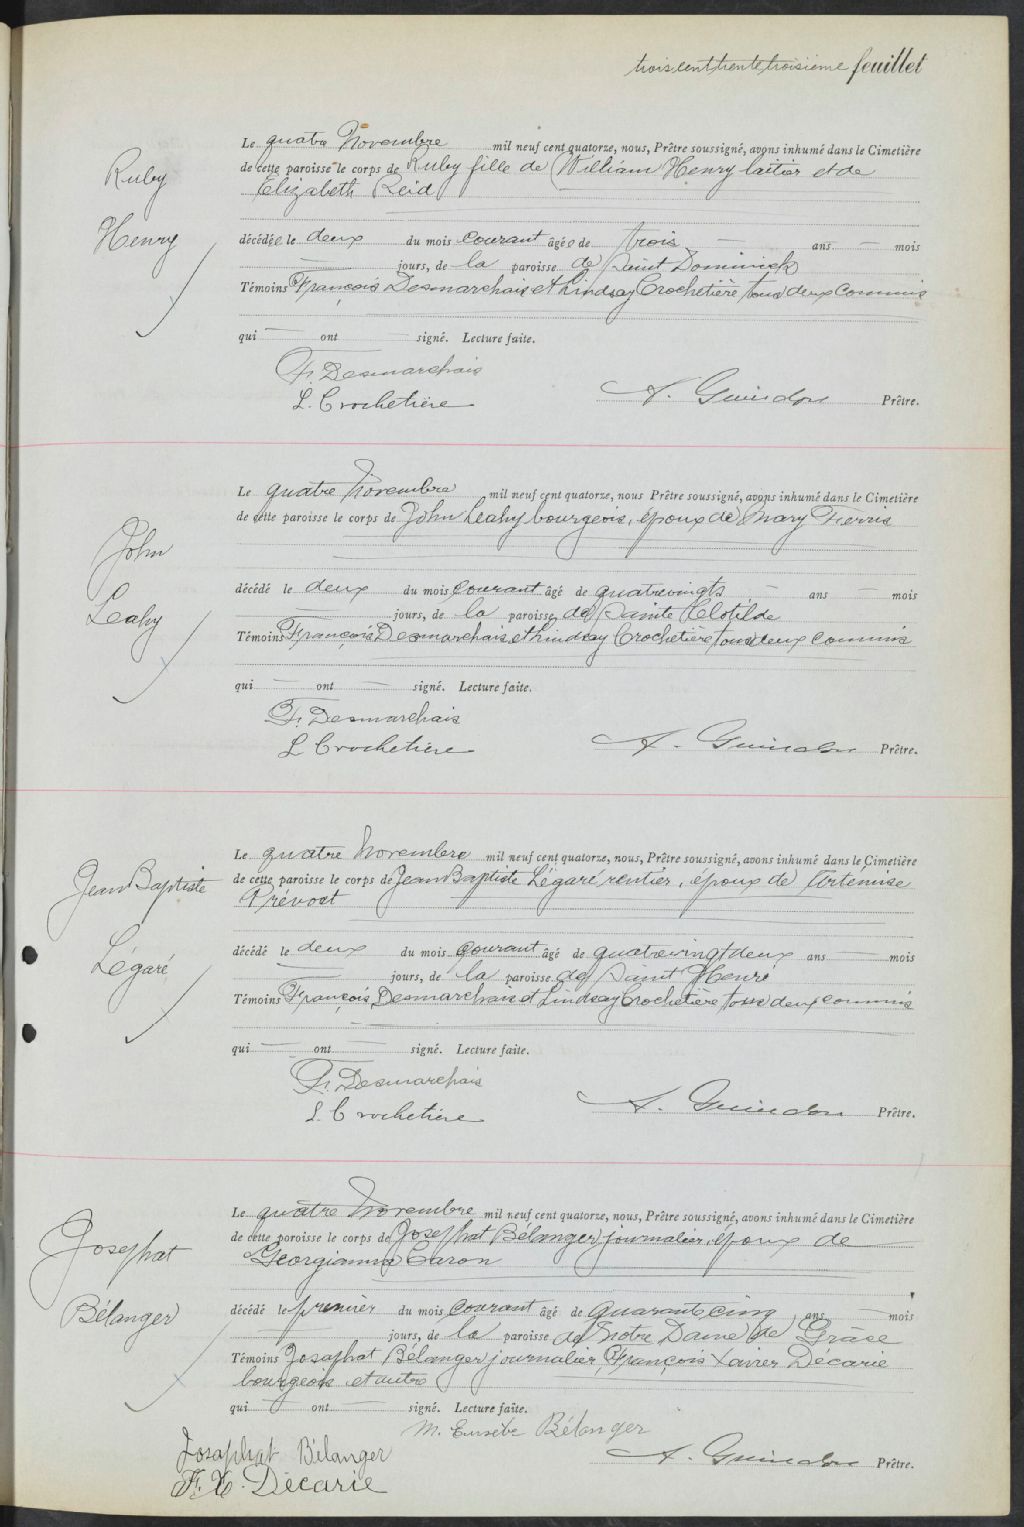 trois cent trente troisième feuillet
Ruby
Henry
Le quatre Novembre mil neuf cent quatorze, nous, Prêtre soussigné, avons inhumé dans le Cimetière
de cette paroisse le corps de Ruby fille de William Henry laitier et de
Elizabeth Reid
décédée le deux du mois courant âgée de trois — ans — mois
— jours, de la paroisse de Saint Dominick
Témoins François Desmarchais et Lindsay Crochetière tous deux commis
qui — ont — signé. Lecture faite.
F. Desmarchais
L. Crochetière A. Guindon Prêtre.
John
Leahy
Le quatre Novembre mil neuf cent quatorze, nous Prêtre soussigné, avons inhumé dans le Cimetière
de cette paroisse le corps de John Leahy bourgeois, époux de Mary Ferris
décédé le deux du mois courant âgé de quatrevingts — ans — mois
— jours, de la paroisse de Sainte Clotilde
Témoins François Desmarchais et Lindsay Crochetière tous deux commis
qui — ont — signé. Lecture faite.
F. Desmarchais
L Crochetière A. Guindon Prêtre.
Jean Baptiste
Légaré
Le quatre Novembre mil neuf cent quatorze, nous, Prêtre soussigné, avons inhumé dans le Cimetière
de cette paroisse le corps de Jean Baptiste Légaré rentier, époux de Artémise
Prévost
décédé le deux du mois courant âgé de quatrevingtdeux ans — mois
— jours, de la paroisse de Saint Henri
Témoins François Desmarchais et Lindsay Crochetière tous deux commis
qui — ont — signé. Lecture faite.
F. Desmarchais
L. Crochetière A. Guindon Prêtre.
Josephat
Bélanger
Le quatre Novembre mil neuf cent quatorze, nous, Prêtre soussigné, avons inhumé dans le Cimetière
de cette paroisse le corps de Josephat Bélanger journalier, époux de
Georgianna Caron
décédé le premier du mois courant âgé de quarante cinq ans — mois
— jours, de la paroisse de Notre Dame de Grâce
Témoins Josaphat Bélanger journalier, François Xavier Décarie
bourgeois et autre
qui — ont — signé. Lecture faite.
M. Eusèbe Bélanger
Josaphat Bélanger A. Guindon Prêtre.
F. X. Décarie